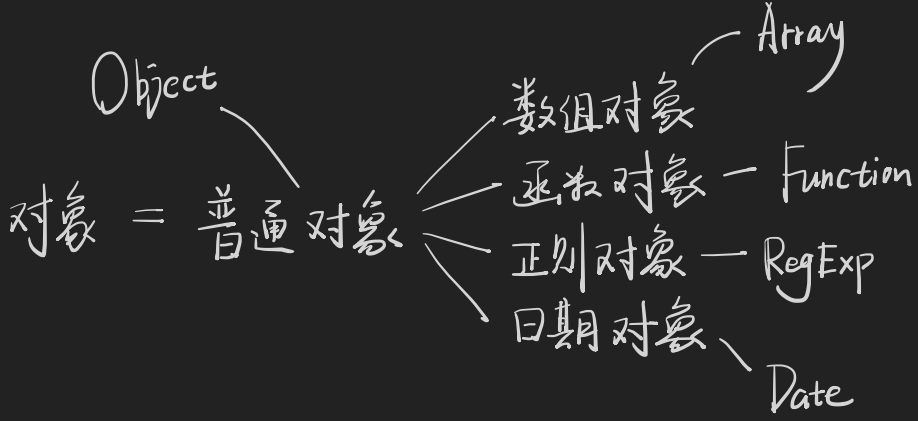 Object
对象 = 普通对象
数组对象 — Array
函数对象 — Function
正则对象 — RegExp
日期对象 — Date